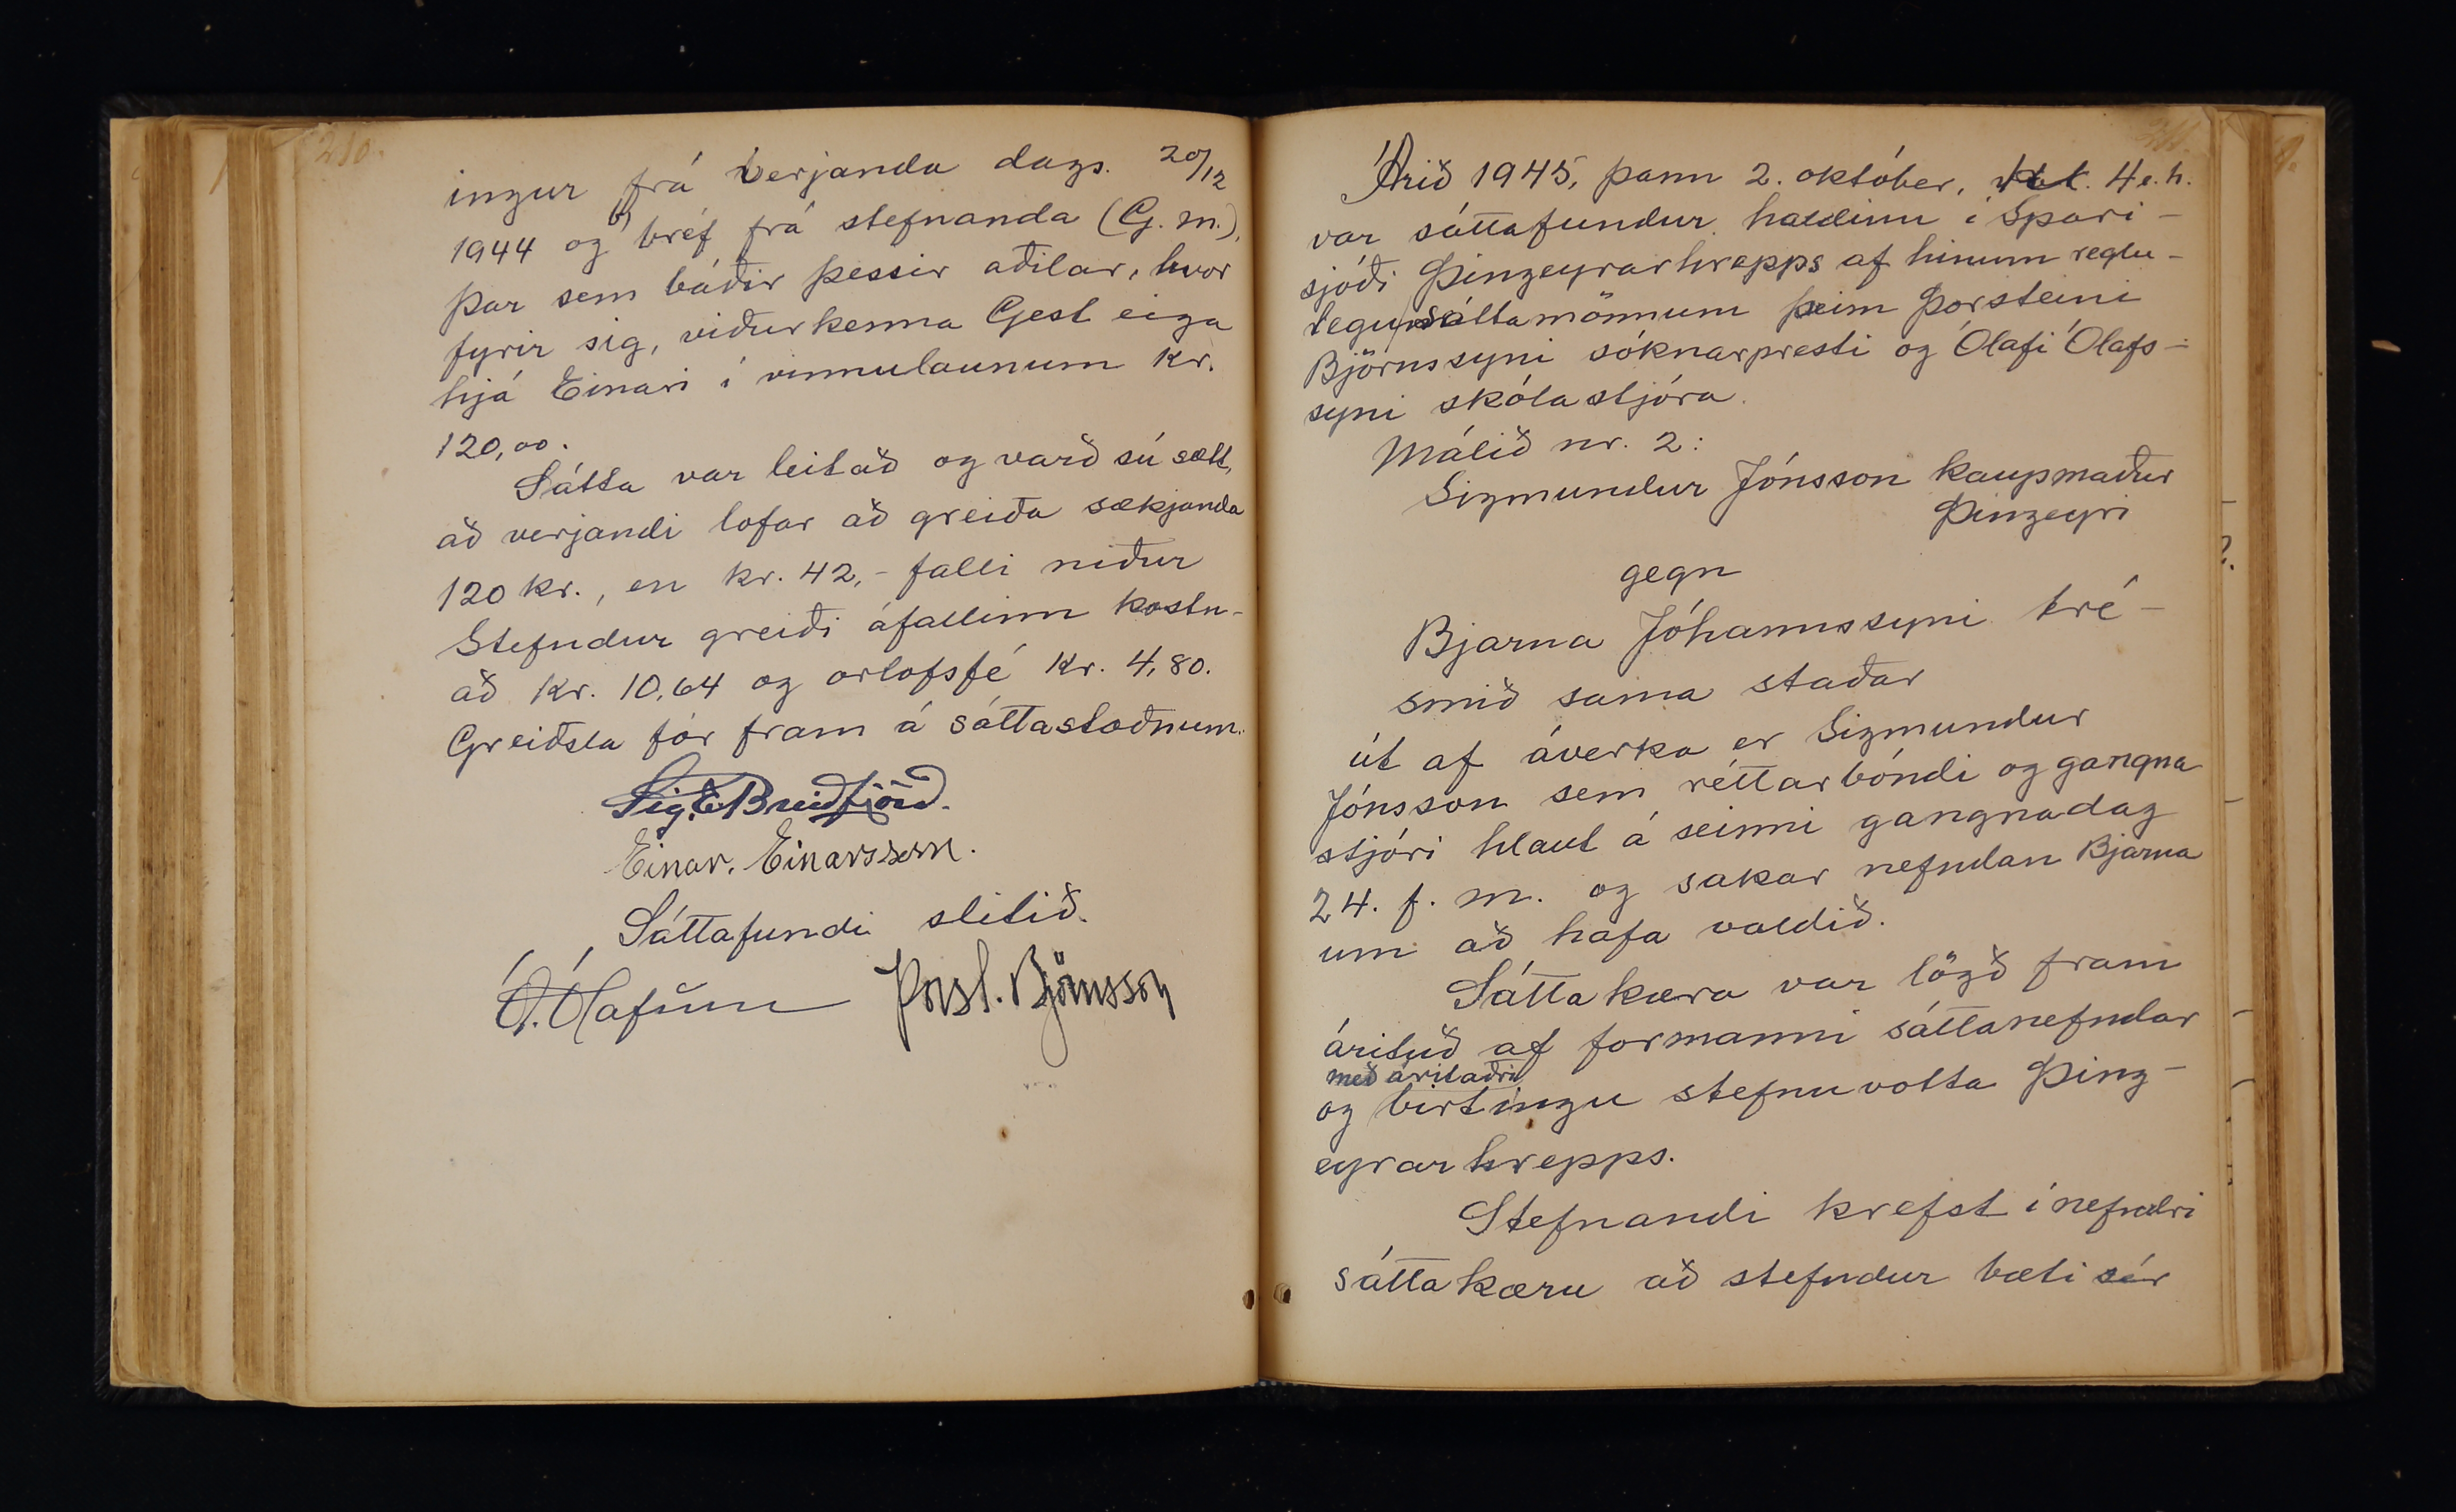 210.
ingur frá verjanda dags. 20/12
1944 og b) bréf frá stefnanda (G. M.),
þar sem báðir þessir aðilar, hvor
fyrir sig, viðurkenna Gest eiga
hjá Einari í vinnulaunum kr.
120,00.
Sátta var leitað og varð sú sætt,
að verjandi lofar að greiða sækjanda
120 kr., en kr. 42,- falli niður
Stefndur greiði áfallinn kostn-
að kr. 10,64 og orlofsfé kr. 4,80.
Greiðsla fór fram á sáttastaðnum.
Sig. E. Breiðfjörð.
Einar. Einarsson.
Sáttafundi slitið.
Ó. Ólafsson Þorst. Björnsson
211.
Árið 1945, þann 2. október, kl. 4 e.h.
var sáttafundur haldinn í Spari-
sjóði Þingeyrarhrepps af hinum reglu-
legu sáttamönnum þeim Þorsteini
Björnssyni sóknarpresti og Ólafi Ólafs-
syni skólastjóra.
Málið nr. 2:
Sigmundur Jónsson kaupmaður
Þingeyri
gegn
Bjarna Jóhannssyni tré-
smið sama staðar
út af áverka er Sigmundur
Jónsson sem réttarbóndi og gangna
stjóri hlaut á seinni gangnadag
24. f. m. og sakar nefndan Bjarna
um að hafa valdið.
Sáttakæra var lögð fram
árituð af formanni sáttanefndar
með áritaðri
og birtingu stefnuvotta Þing-
eyrarhrepps.
Stefnandi krefst í nefndri
sáttakæru að stefndur bæti sér